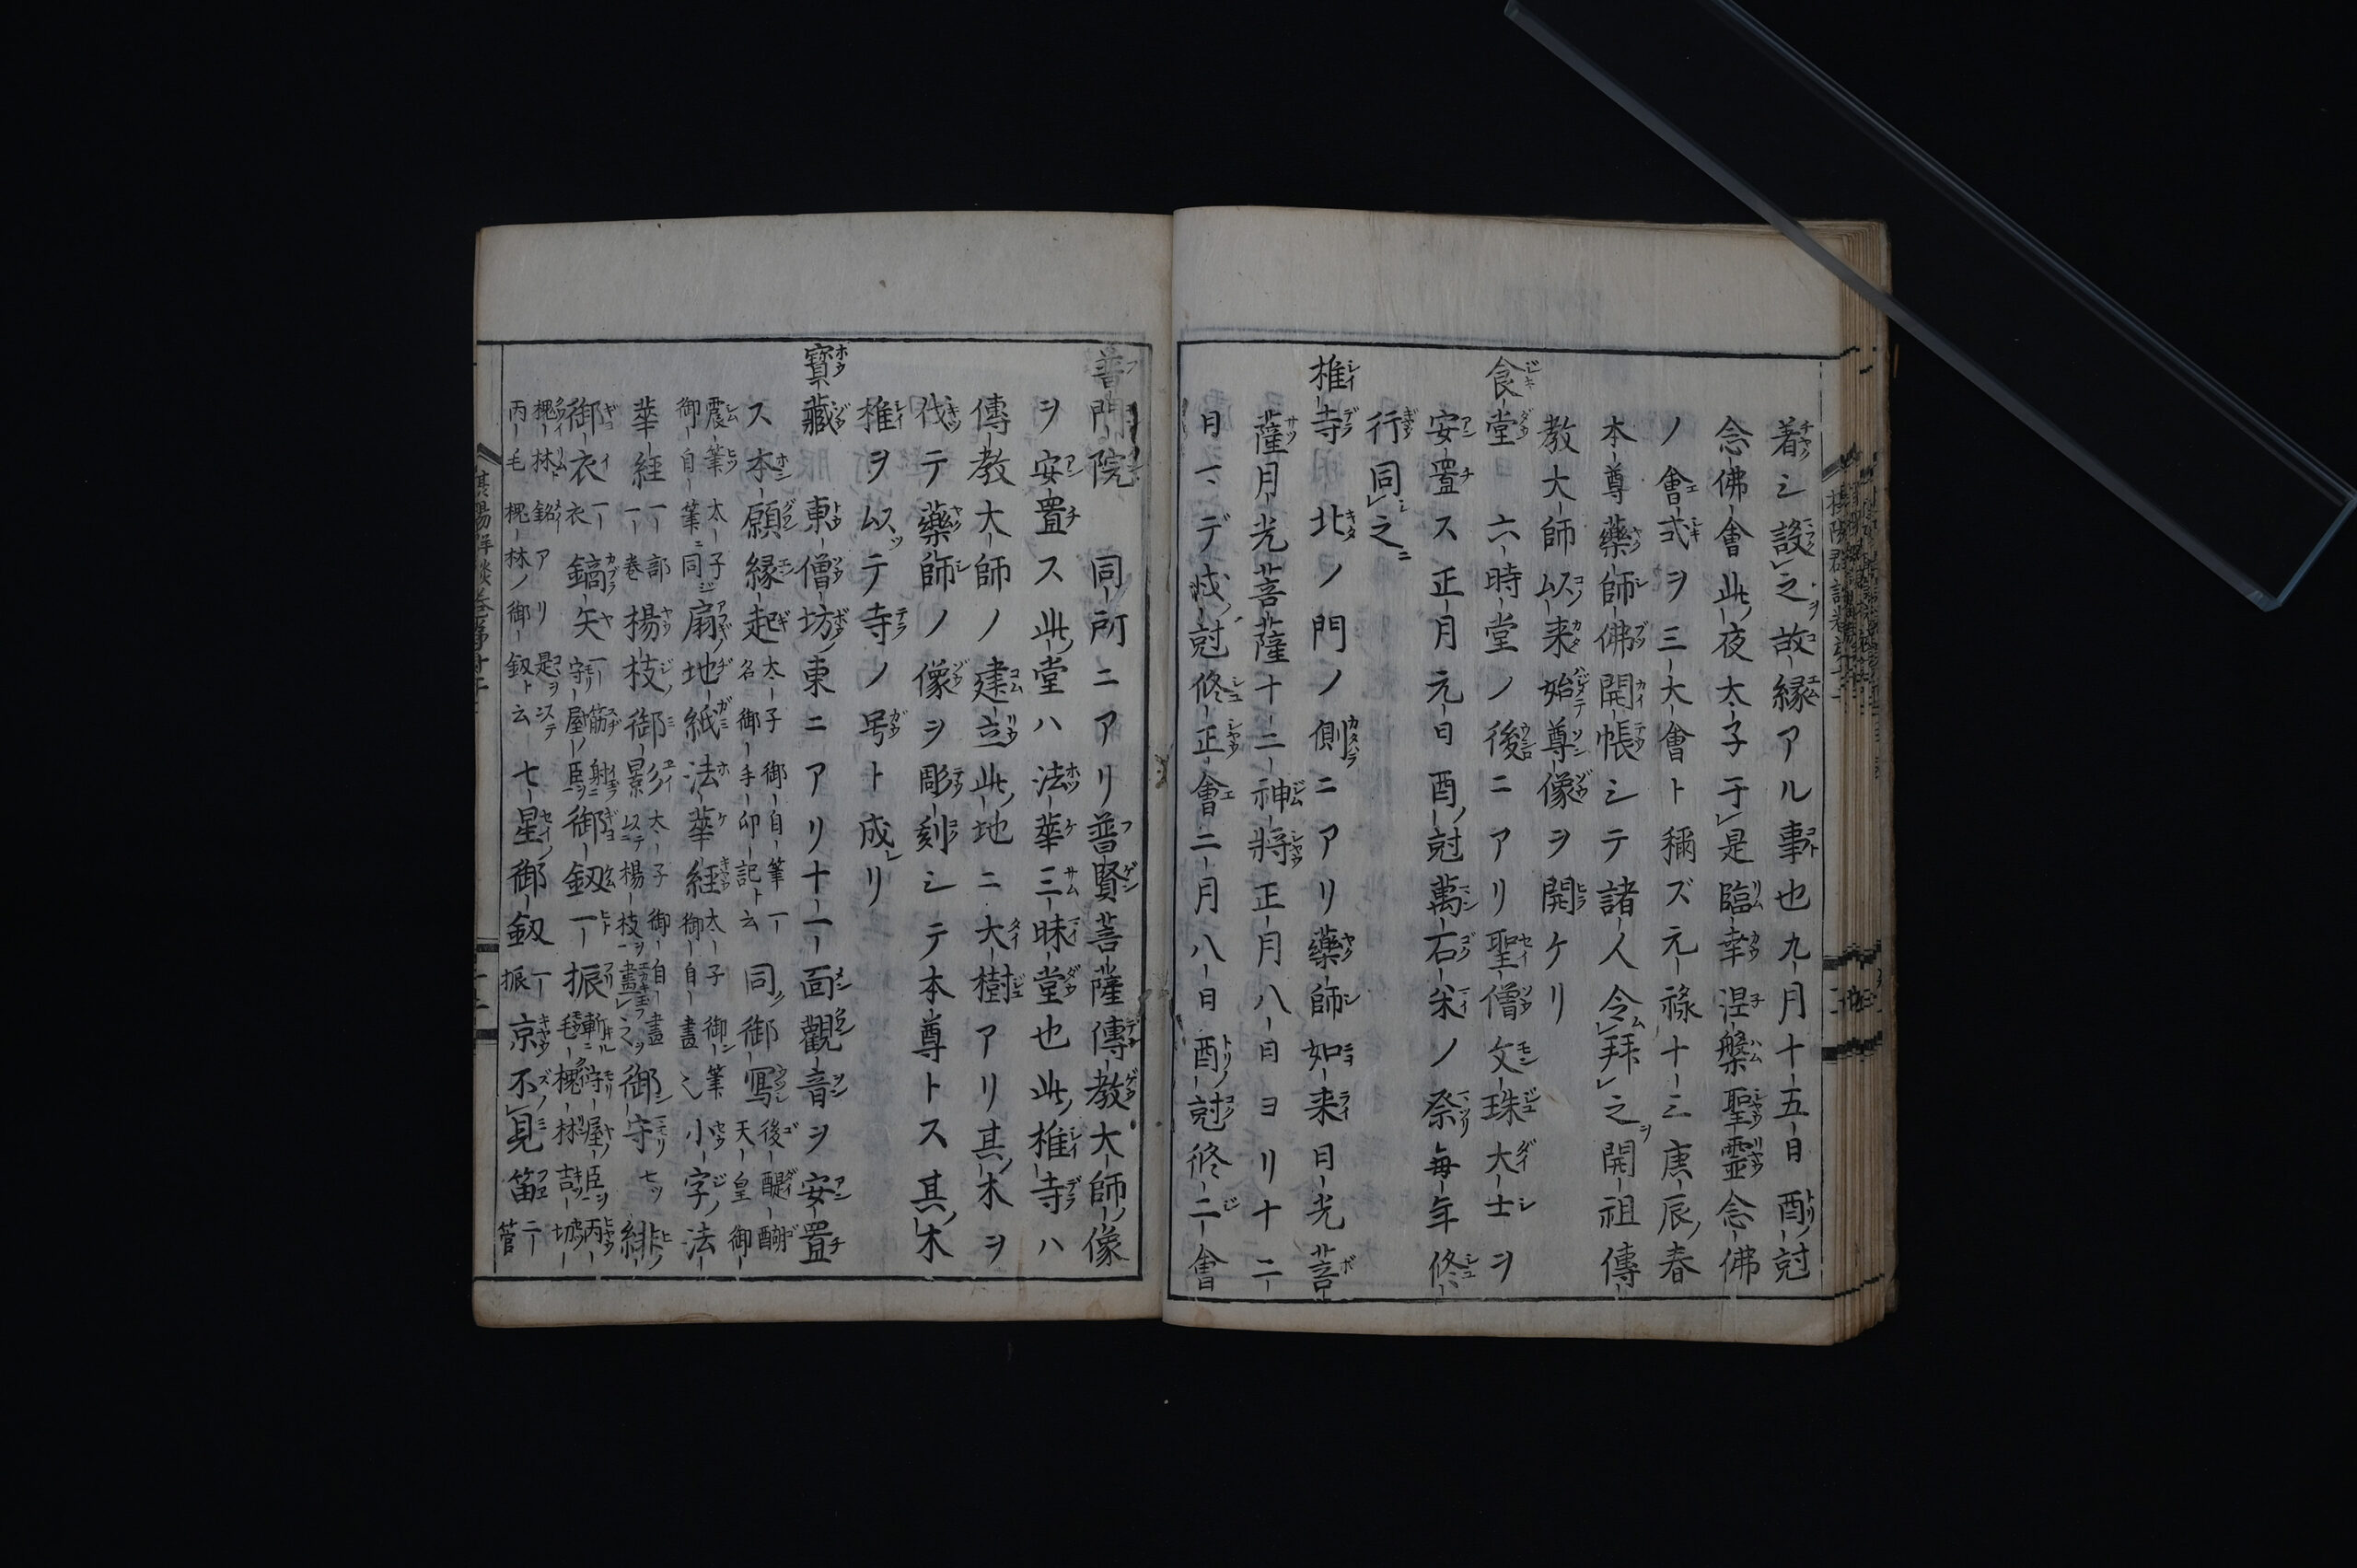 着シ設之故縁アル事也九月十五日酉尅
念佛會此夜太子于是臨幸涅槃聖霊念佛
ノ會式ヲ三大會ト稱ズ元禄十三庚辰春
本尊藥師佛開帳シテ諸人令拜之開祖傳
教大師以来始尊像ヲ開ケリ
食堂 六時堂ノ後ニアリ聖僧文珠大士ヲ
安置ス正月元日酉尅萬石米ノ祭毎年修
行同之
椎寺 北ノ門ノ側ニアリ藥師如来日光菩
薩月光菩薩十二神將正月八日ヨリ十二
日マデ戌尅修正會二月八日酉尅修二會
普門院 同所ニアリ普賢菩薩傳教大師像
ヲ安置ス此堂ハ法華三昧堂也此椎寺ハ
傳教大師ノ建立此地ニ大樹アリ其木ヲ
伐テ藥師ノ像ヲ彫刻シテ本尊トス其木
椎ヲ以テ寺ノ号ト成リ
寳藏 東僧坊東ニアリ十一面觀音ヲ安置
ス本願縁起 太子御自筆一名御手印記ト云 同御寫 後醍醐天皇御
震筆太子御自筆ニ同ジ 扇地紙法華經 太子御筆御自畫 小字法
華経 一部一巻 楊枝御影 太子御自畫以テ楊枝ヲ畫之 御守 七ツ 緋
御衣 一衣 鏑矢 一筋射守屋臣 御釼一振 斬守屋臣丙毛槐林吉切
槐林銘アリ是ヲ丙毛槐林ノ御釼ト云 七星御釼 一振 京不見笛 二管